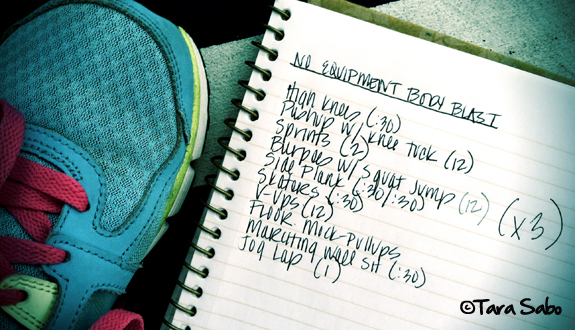 NO EQUIPMENT BODY BLAST
High knees (:30)
Pushup w/ knee tuck (12)
Sprints (2)
Burpees w/ squat jump (12)
Side Plank (:30/:30)
Skaters (:30)
V-ups (12)
Floor Mick-Pullups
Marching wall sit (:30)
Jog Lap (1)
(x3)
©Tara Sabo